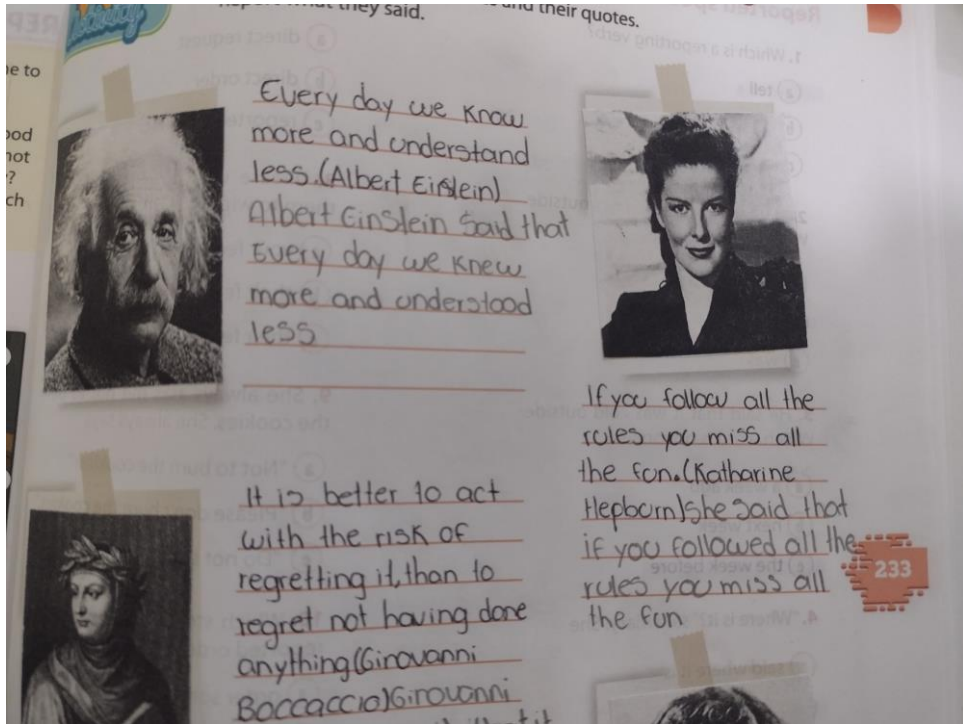 what they said.
and their quotes.
e to
ood
not
?
ch
Every day we know
more and understand
less.(Albert Einslein)
Albert Einslein Said that
Every day we knew
more and understood
less
If you follow all the
rules you miss all
the fun.(Katharine
Hepburn)she Said that
if you followed all the
rules you miss all
the fun
233
It is better to act
with the risk of
regretting it, than to
regret not having done
anything(Giovanni
BOCCACCIO)Giovanni